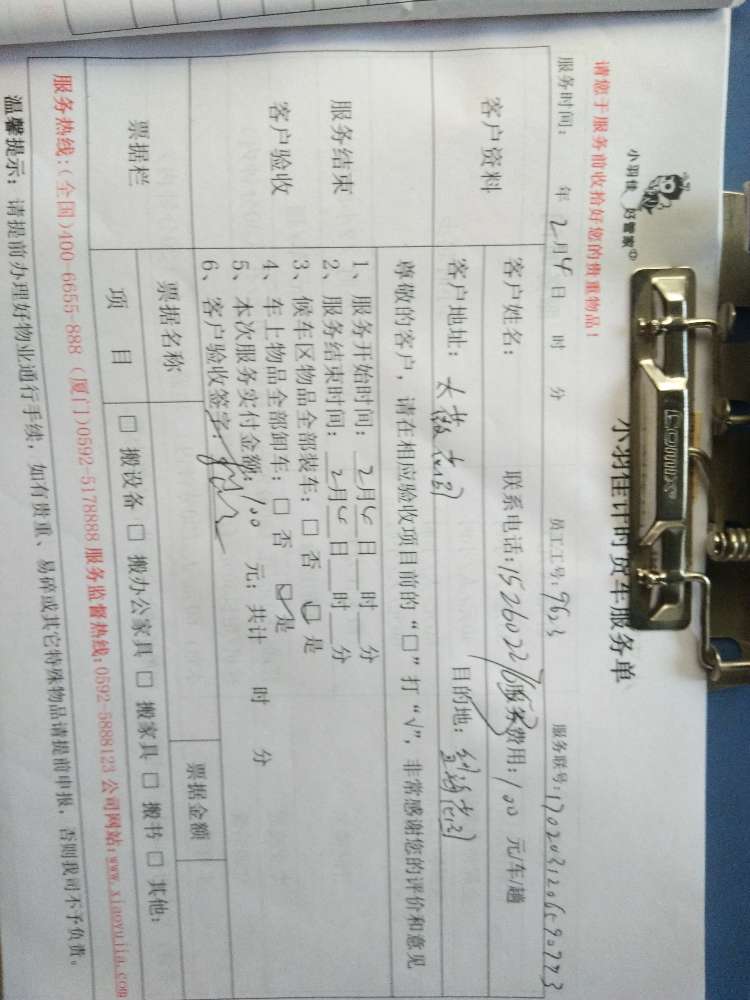 小羽佳 好管家
小羽佳计时货车服务单
请您于服务前收拾好您的贵重物品！
服务时间： 年 2月4日 时 分 员工工号：9623 服务联号：1702031206590773
客户资料
客户姓名： 联系电话： 服务费用：100 元/车/趟
客户地址： 目的地：
尊敬的客户，请在相应验收项目前的“□”打“√”，非常感谢您的评价和意见
服务结束
客户验收
1、服务开始时间：2月4日 时 分
2、服务结束时间：2月4日 时 分
3、候车区物品全部装车：□ 否 □ 是
4、车上物品全部卸车：□ 否 □ 是
5、本次服务实付金额：100 元；共计 时 分
6、客户验收签字：
票据栏
票据名称 票据金额
项目 □ 搬设备 □ 搬办公家具 □ 搬家具 □ 搬书 □ 其他：
服务热线：（全国）400-6655-888 （厦门）0592-5178888 服务监督热线：0592-5888123 公司网站：www.xiaoyujia.com
温馨提示：请提前办理好物业通行手续，如有贵重、易碎或其它特殊物品请提前申报，否则我司不予负责。